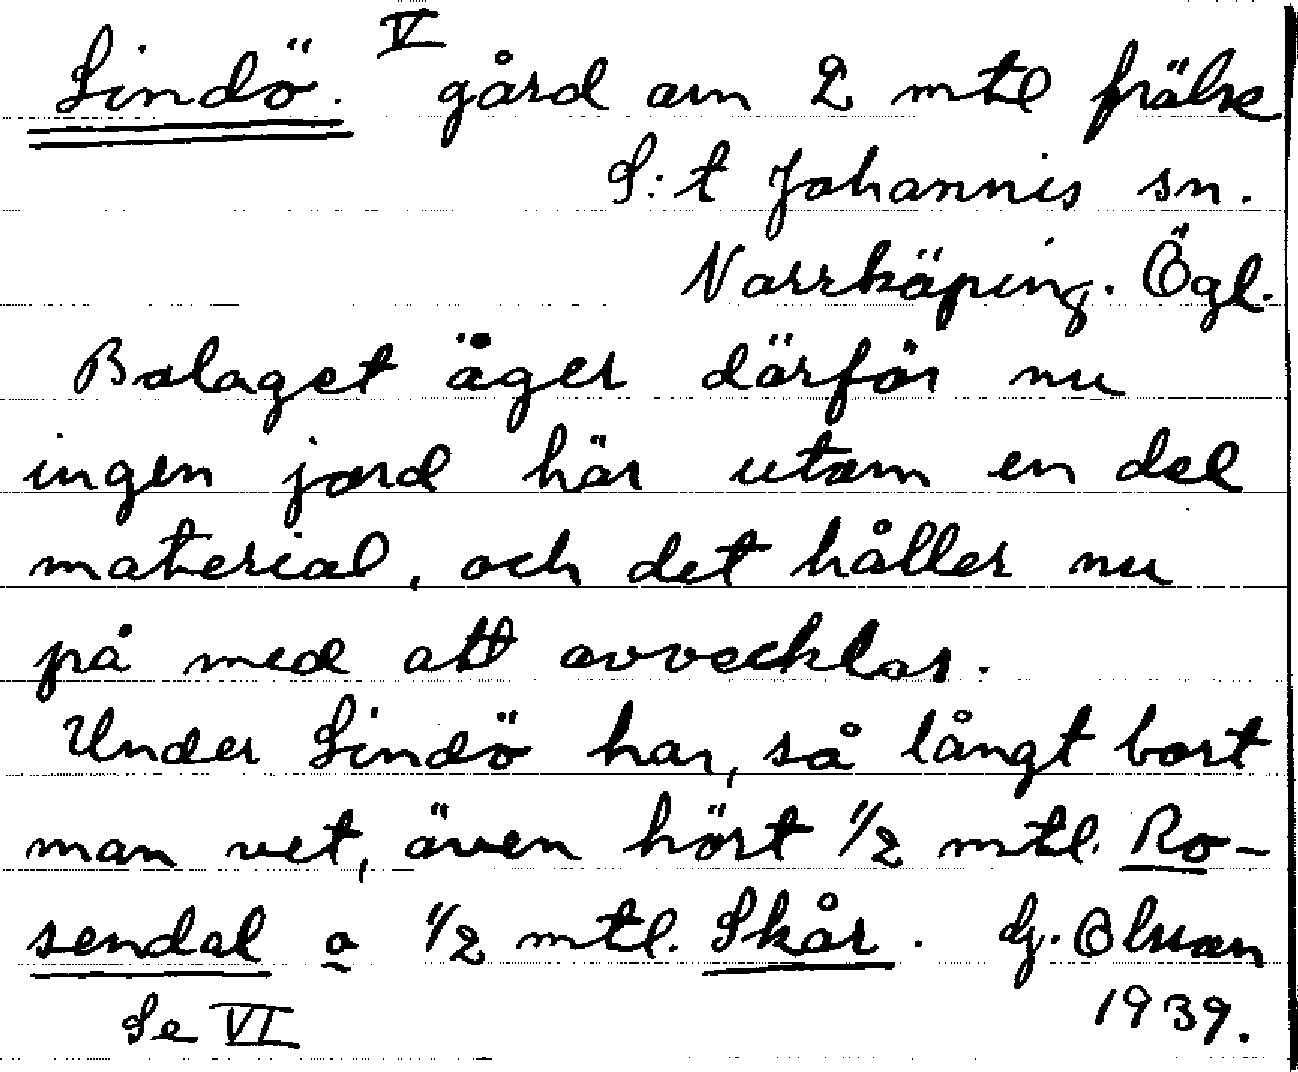 Lindö. V gård om 2 mtl frälse
S:t Johannis sn.
Norrköping. Ögl.
Bolaget äger därför nu
ingen jord här utom en del
material, och det håller nu
på med att avvecklas.
Under Lindö har, så långt bort
man vet, även hört 1/2 mtl. Ro-
sendal o 1/2 mtl. Skår. G. Olsson
Se VI 1939.